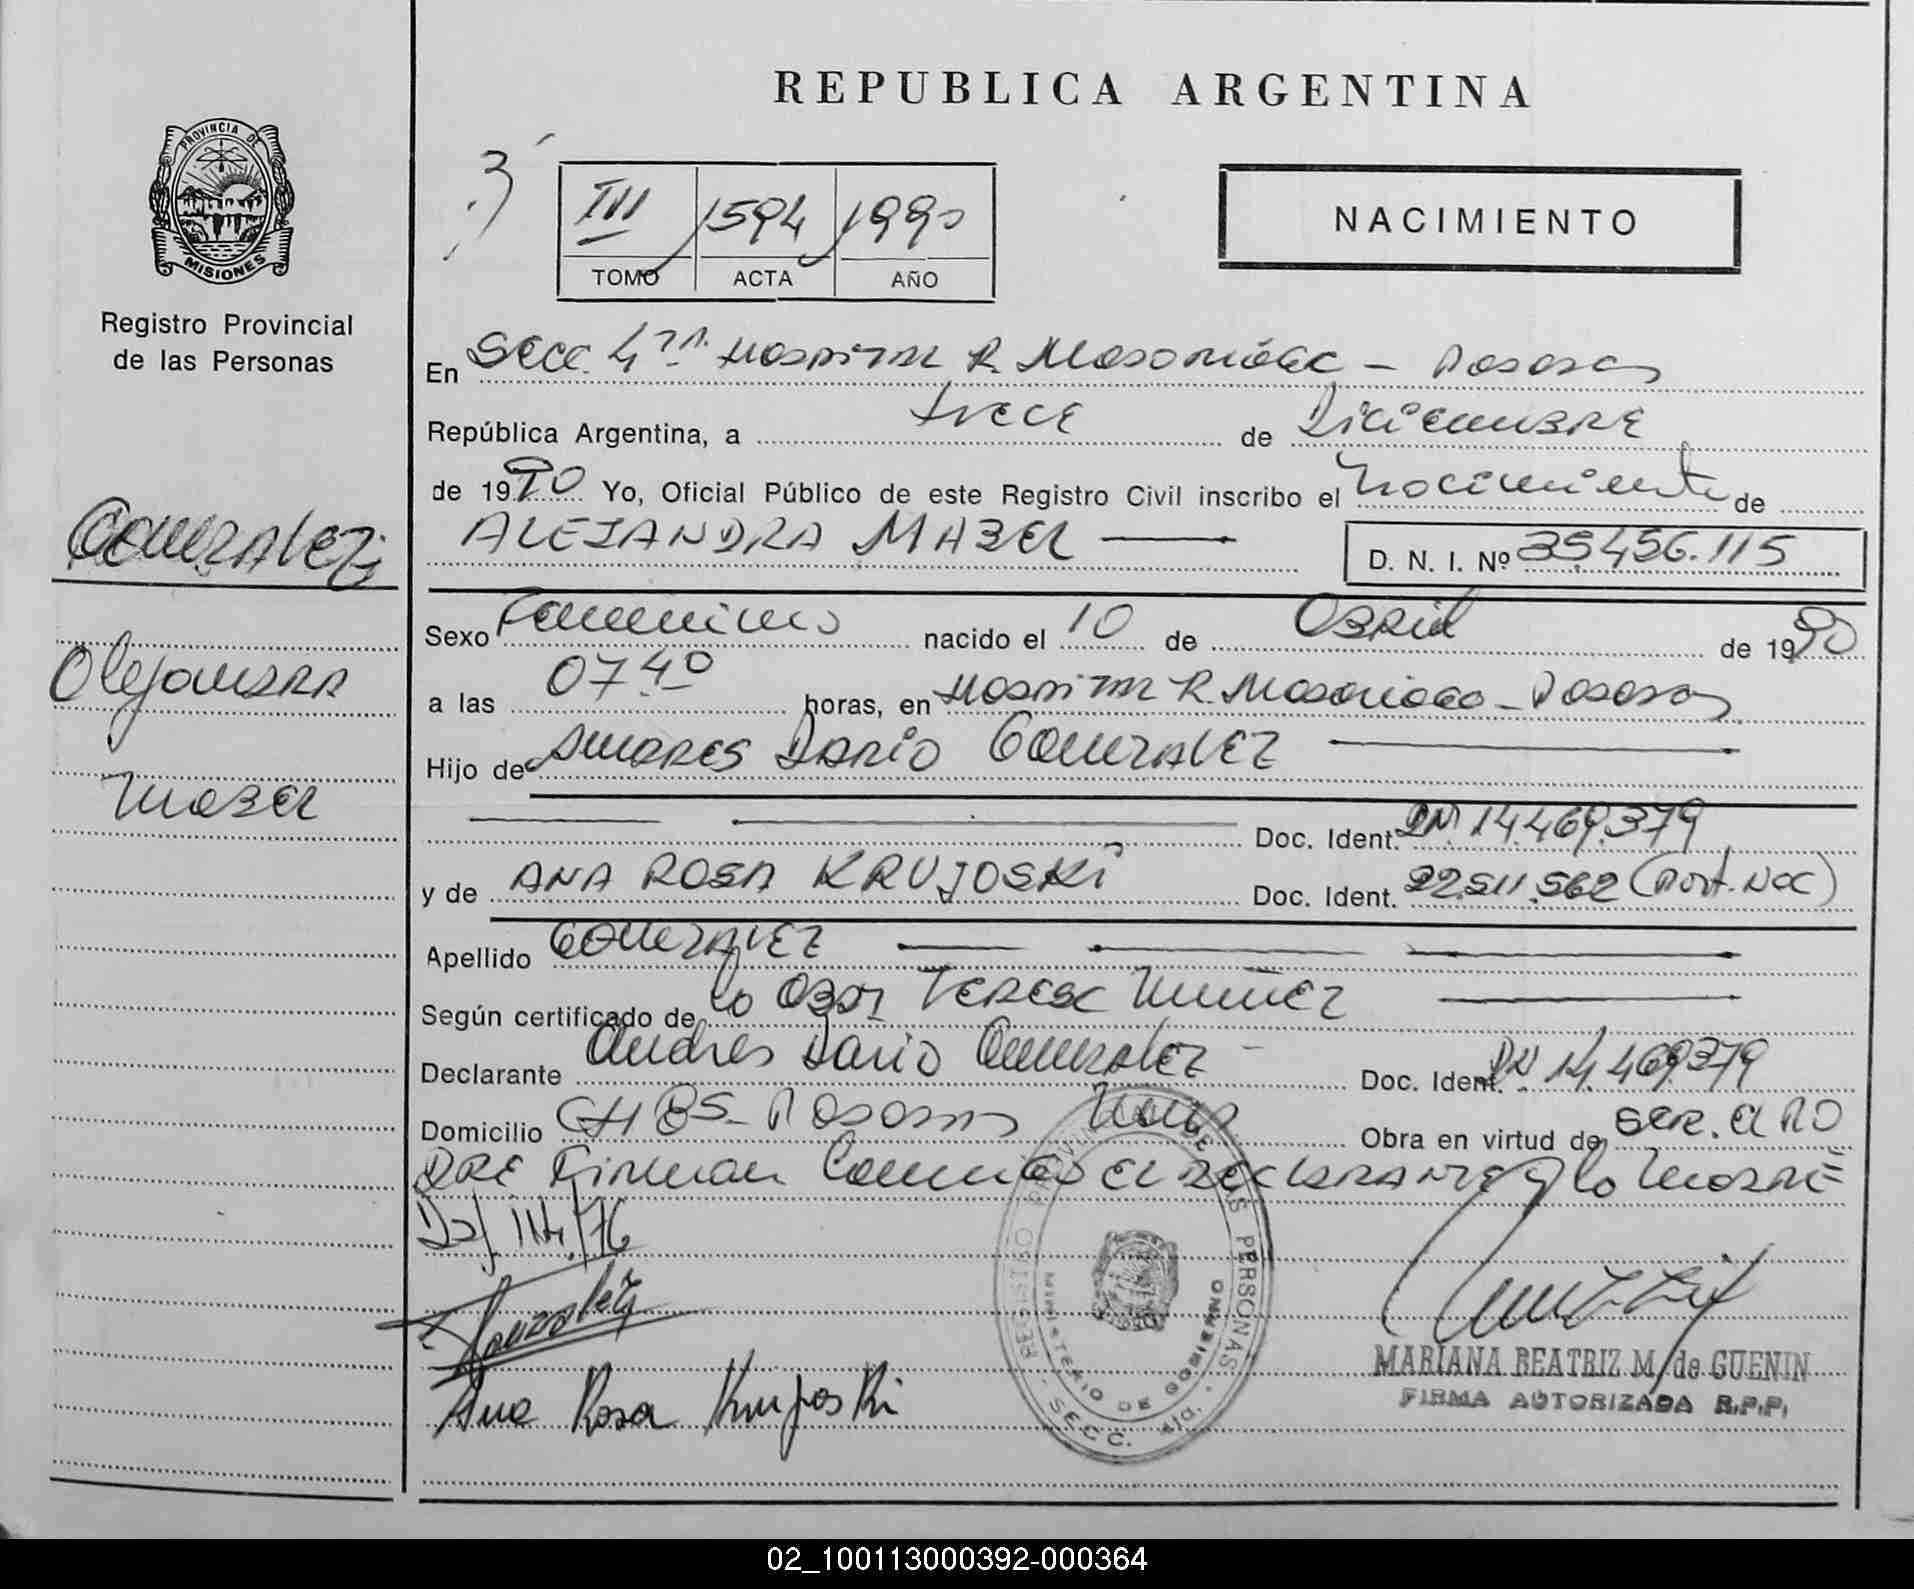 REPUBLICA ARGENTINA
PROVINCIA DE
MISIONES
Registro Provincial
de las Personas
III 1594 1990
TOMO ACTA AÑO
NACIMIENTO
En Secc. 4ta. Hospital R. Madariaga - Posadas
República Argentina, a trece de Diciembre
de 1990 Yo, Oficial Público de este Registro Civil inscribo el Nacimiento de
ALEJANDRA MABEL
D. N. I. Nº 35.456.115
GONZALEZ
Alejandra
Mabel
Sexo Femenino nacido el 10 de Abril de 1990
a las 07 40 horas, en Hospital R. Madariaga - Posadas
Hijo de Andres Dario GONZALEZ
Doc. Ident. DNI 14.469.379
y de ANA ROSA KRUJOSKI Doc. Ident. 22.511.562 (Part. Nac)
Apellido GONZALEZ
Según certificado de la Obst Terese Nuñez
Declarante Andres Dario Gonzalez Doc. Ident. DNI 14.469379
Domicilio CH 85- Posadas Obra en virtud de ser. el PA
DRE Firman Conmigo el declarante y la Madre
Gonzalez
Ana Rosa Krujoski
REGISTRO PROVINCIAL DE LAS PERSONAS
MINISTERIO DE GOBIERNO
SECC. 4ta.
MARIANA BEATRIZ M. de GUENIN
FIRMA AUTORIZADA R.P.P.
02_100113000392-000364